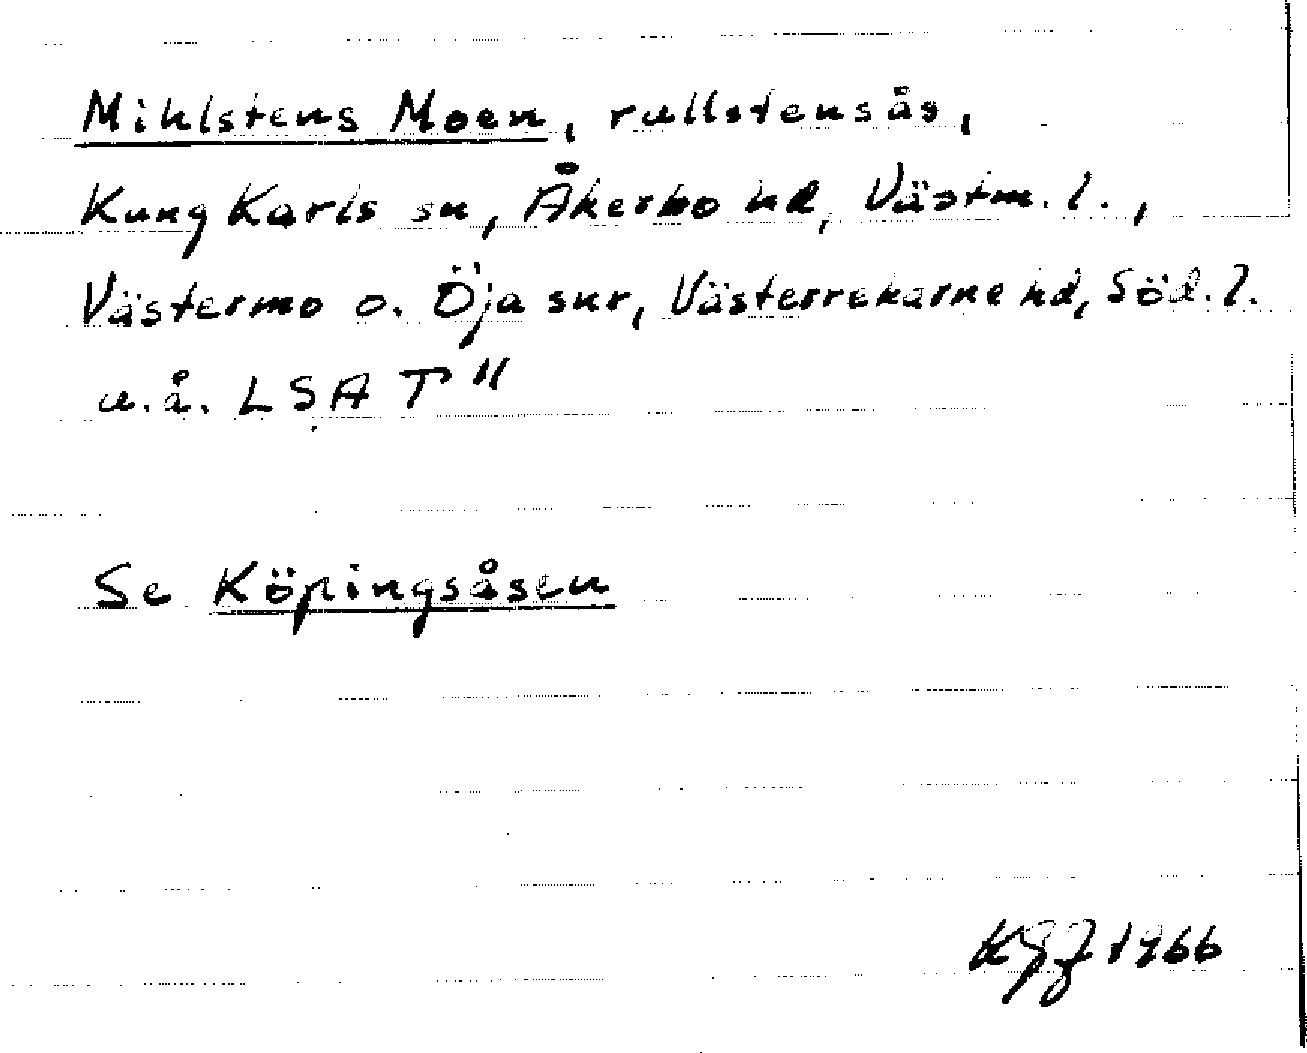 Mihlstens Moen, rullstensås,
Kung Karls sn, Åkerbo hd, Västm. l.,
Västermo o. Öja snr, Västerrekarne hd, Söd. l.
u.å. LSA T"
Se Köpingsåsen
1966